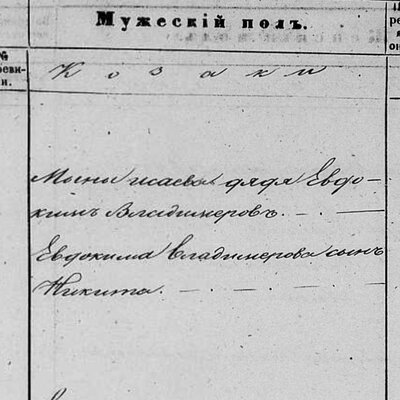 Мужескій полъ.
№
реви-
и.
Козаки
Мины Исаева дядя Евдо-
кимъ Владимеровъ.
Евдокима Владимерова сынъ
Никита.